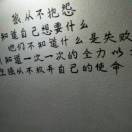 我从不抱怨
知道自己想要什么
他们不知道什么是失败
知道一次一次的全力以
从不放弃自己的使命